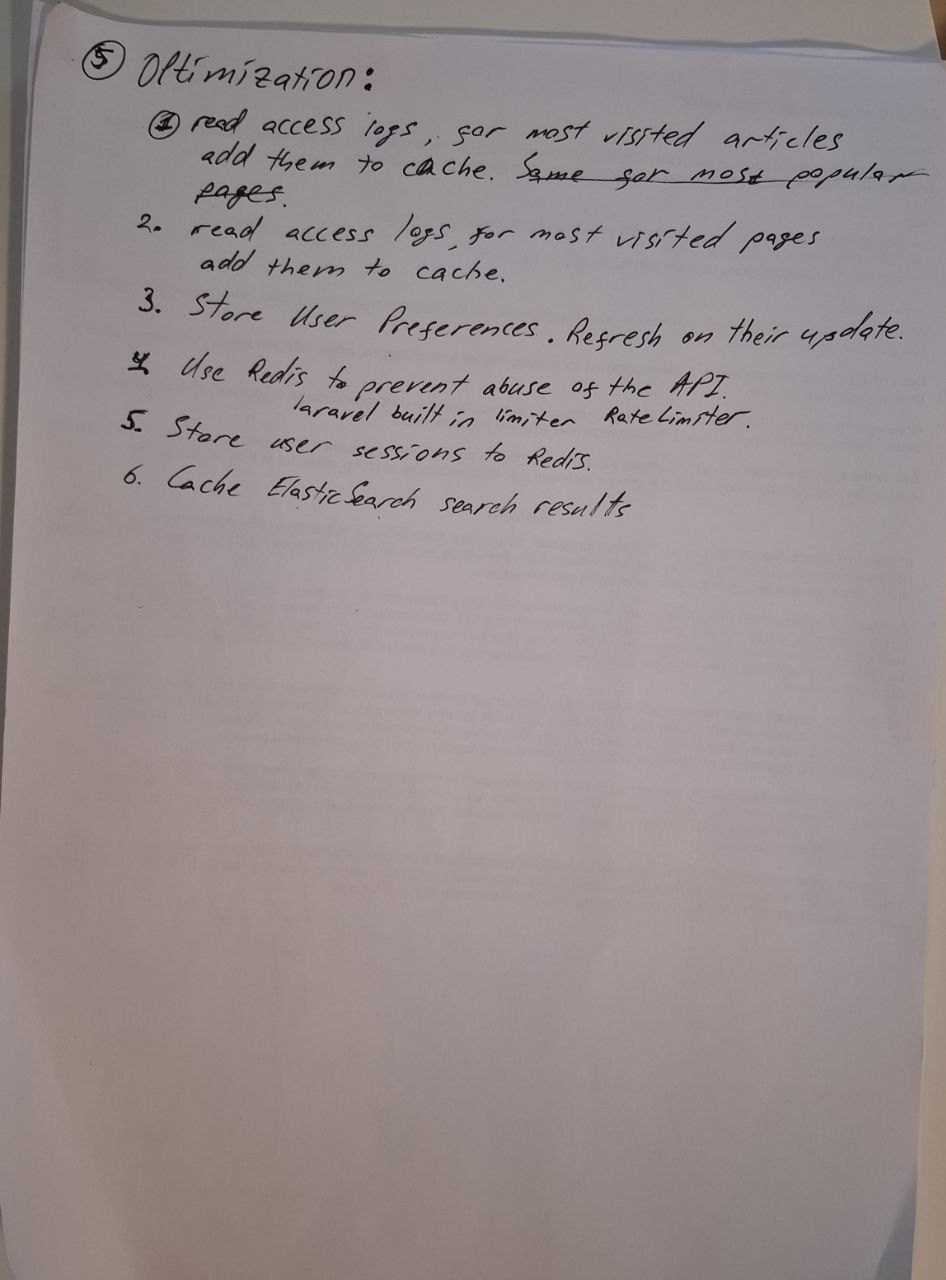 ⑤ Optimization:
① read access logs, for most visited articles
add them to cache. Same for most popular
pages.
2. read access logs, for most visited pages
add them to cache.
3. Store User Preferences. Refresh on their update.
4. Use Redis to prevent abuse of the API.
laravel built in limiter RateLimiter.
5. Store user sessions to Redis.
6. Cache ElasticSearch search results